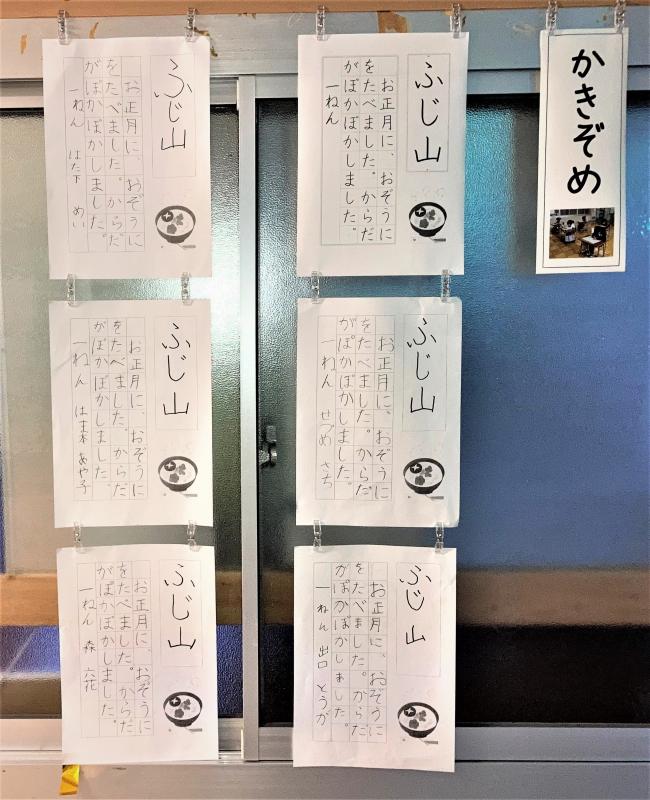 かきぞめ
ふじ山
お正月に、おぞうに
をたべました。からだ
がぽかぽかしました。
一ねん
ふじ山
お正月に、おぞうに
をたべました。からだ
がぽかぽかしました。
一ねん せづめ さち
ふじ山
お正月に、おぞうに
をたべました。からだ
がぽかぽかしました。
一ねん 出口 とうが
ふじ山
お正月に、おぞうに
をたべました。からだ
がぽかぽかしました。
一ねん はた下 めい
ふじ山
お正月に、おぞうに
をたべました。からだ
がぽかぽかしました。
一ねん はま本 あや子
ふじ山
お正月に、おぞうに
をたべました。からだ
がぽかぽかしました。
一ねん 森 六花